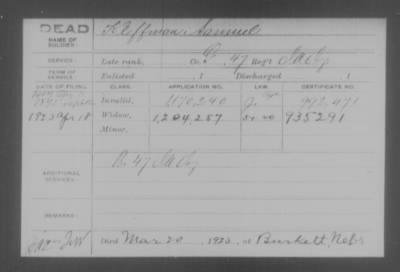 DEAD
NAME OF SOLDIER: Kleffman Samuel
SERVICE: Late rank, Co. B, 47 Reg't Ia Inf
TERM OF SERVICE: Enlisted , 1 Discharged , 1
DATE OF FILING. CLASS. APPLICATION NO. LAW. CERTIFICATE NO.
Invalid, 972,471
1923 Apr 18 Widow, 1,204,257 935291
Minor,
B. 47 Ia Inf
ADDITIONAL SERVICES:
REMARKS:
Died Mar 20, 1923, at Burkett, Nebr